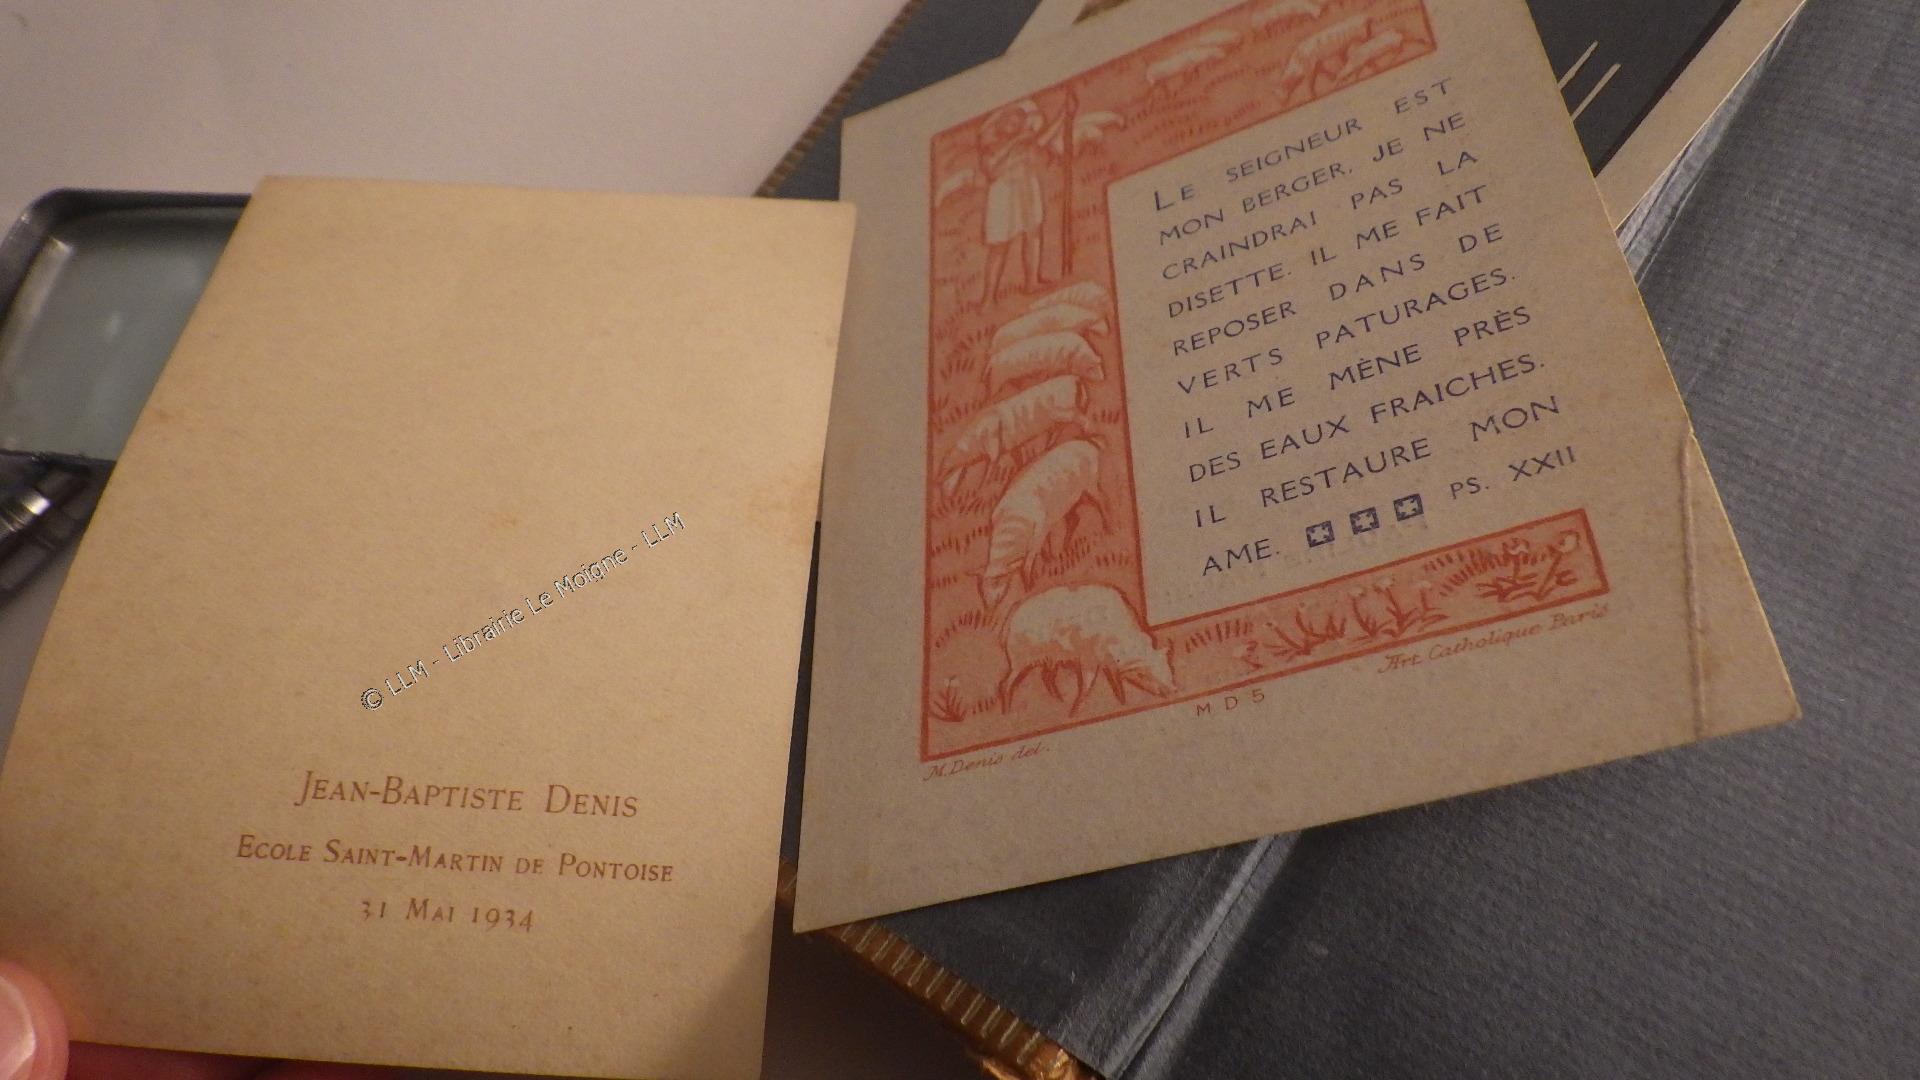 JEAN-BAPTISTE DENIS
ECOLE SAINT-MARTIN DE PONTOISE
31 MAI 1934
© LLM - Librairie Le Moigne - LLM
LE SEIGNEUR EST
MON BERGER, JE NE
CRAINDRAI PAS LA
DISETTE. IL ME FAIT
REPOSER DANS DE
VERTS PATURAGES.
IL ME MÈNE PRÈS
DES EAUX FRAICHES.
IL RESTAURE MON
AME. PS. XXII
M. Denis del.
M D 5
Art Catholique Paris